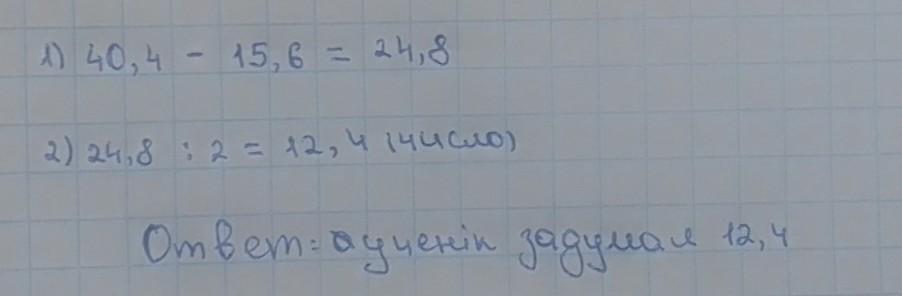 1) 40,4 - 15,6 = 24,8
2) 24,8 : 2 = 12,4 (число)
Ответ: ученік задумал 12,4